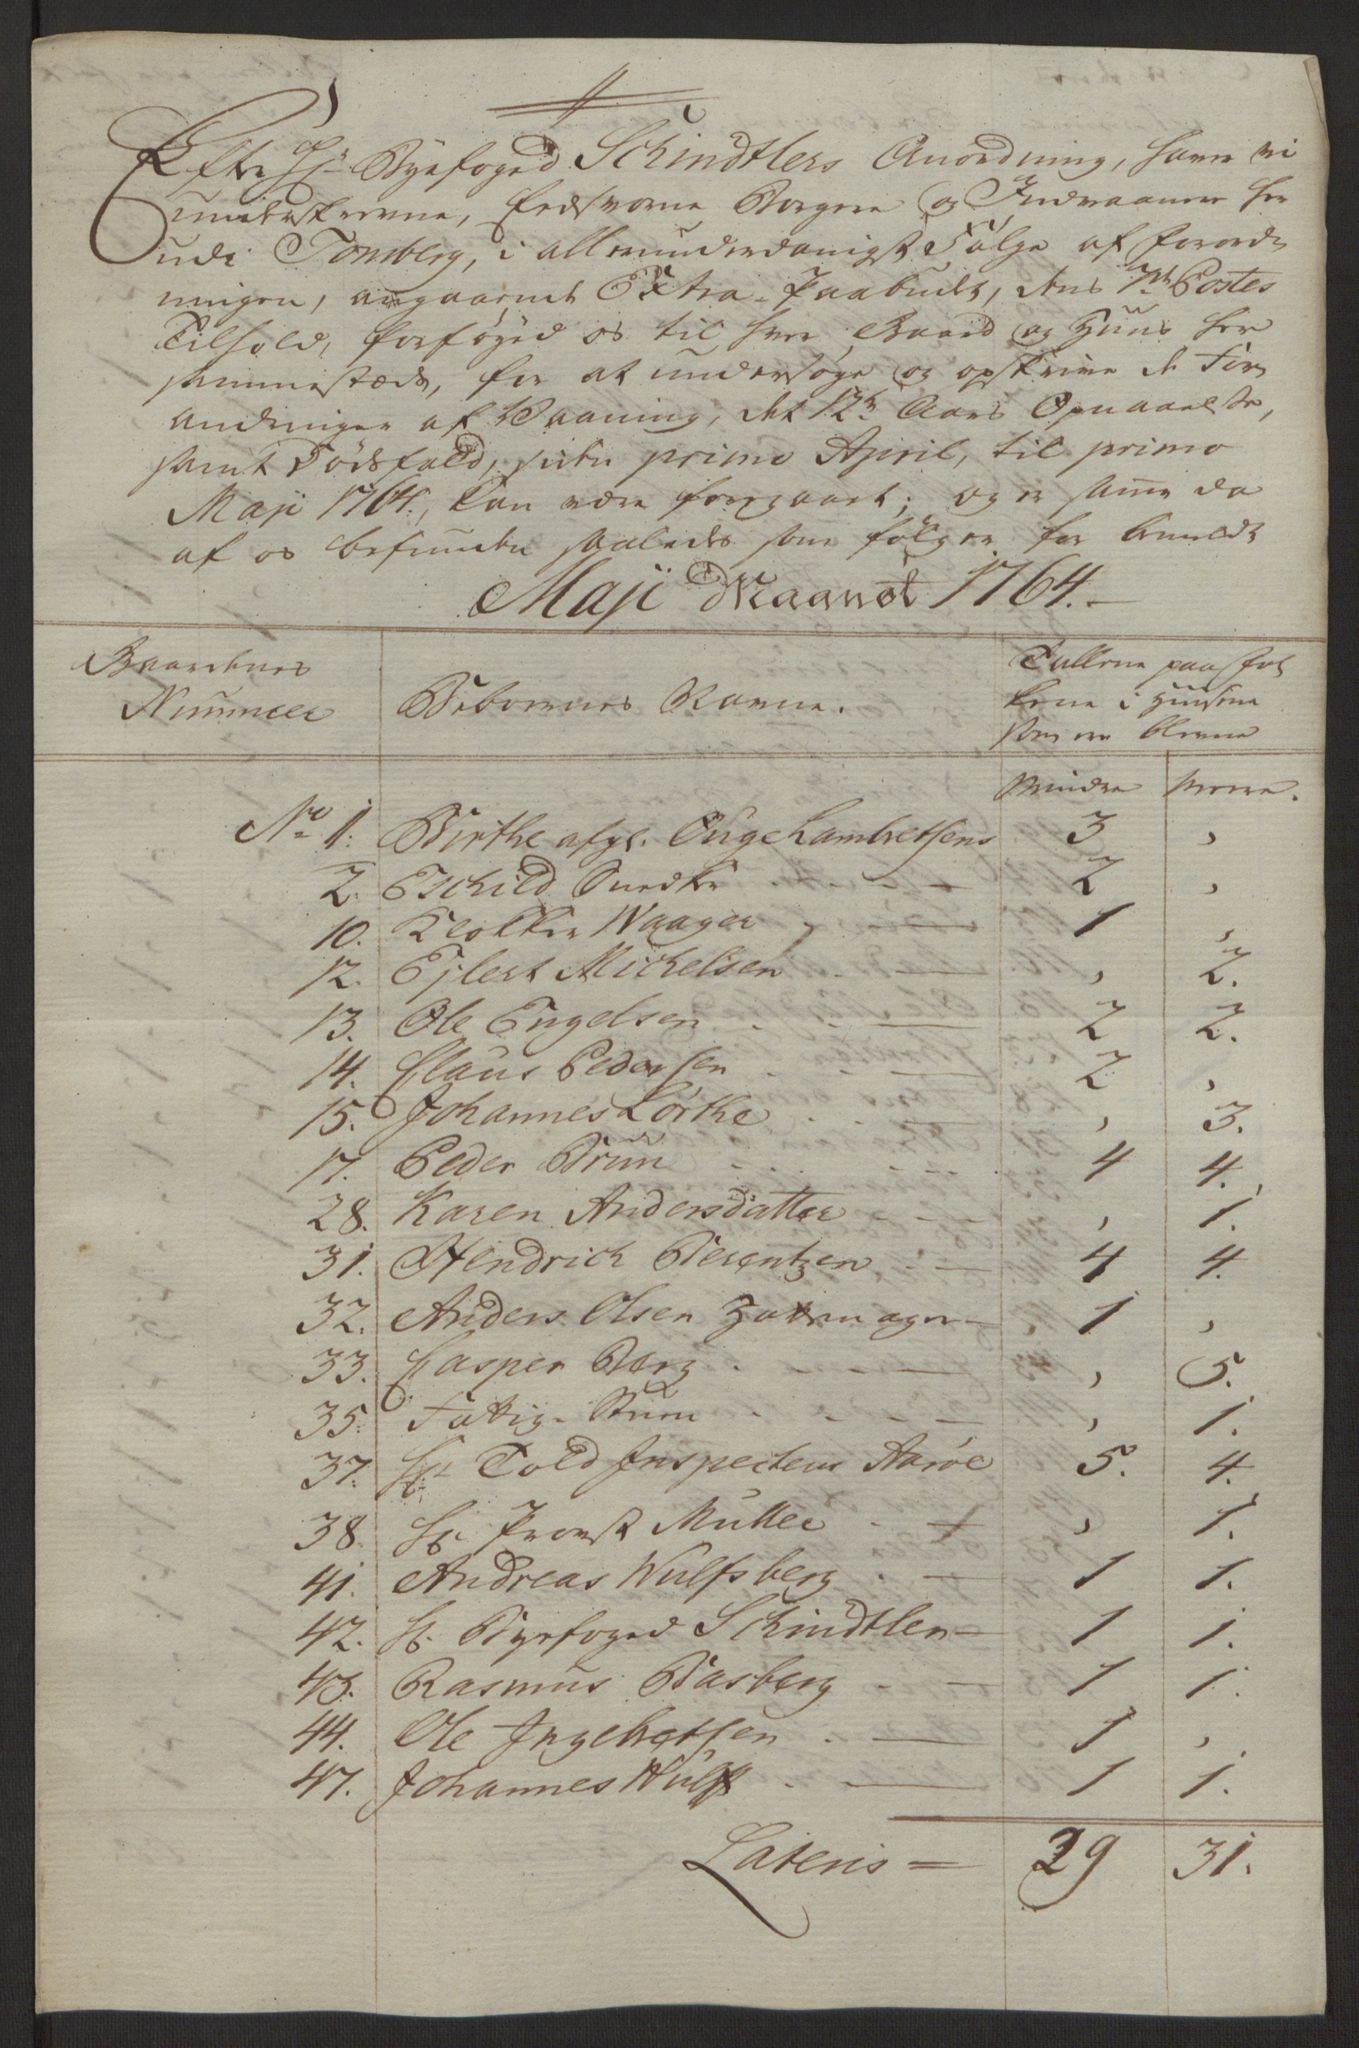 Efter Hr. Byefoged Schindtlers Anordning, have vi
underskrevne, Eedsvorne Borgere og Indvaanere her
udi Tonsberg, i allerunderdanigst Følge af Forord-
ningen, angaaende Extra-Paabudet, dens 7de Postes
Tilhold, forføyed os til hver Gaard og Huus her
sammestæds, for at undersøge og opskrive de For-
andringer af Vaaning, det 12te Aars Opnaaelse,
samt Dødsfald, siden primo April, til primo
Maji 1764, kan være foregaaet; og er samme da
af os befunden saaledes som følger for bemeldt
Maji Maanet 1764.
Gaardenes
Nummer
Beboernes Navne.
Tallene paa Fol-
kene i Huusene
som ere blevne
Mindre
Meere.
No. 1. Birthe afgl. Ouge Lambretsens 3 ,
2. Eschild Snedker 2 ,
10. Klokker Waager 1 ,
12. Ejlert Michelsen , 2.
13. Ole Engelsen 2 2.
14. Claus Pedersen 2 ,
15. Johannes Lørke , 3.
17. Peder Bruun 4 4.
28. Karen Andersdatter , 1.
31. Hendrich Berentzen 4 4.
32. Anders Olsen Hattemager 1 ,
33. Casper Berg , 5.
35. Fattig-Stuen , 1.
37. Hr. Told Inspecteur Aarøe 5. 4.
38. Hr. Provst Müller , 1.
41. Andreas Wulfsberg 1 1.
42. Hr. Byefoged Schindtler 1 1.
43. Rasmus Basberg 1 1.
44. Ole Ingebretsen 1 ,
47. Johannes Wulf 1 1.
Lateris = 29 31.